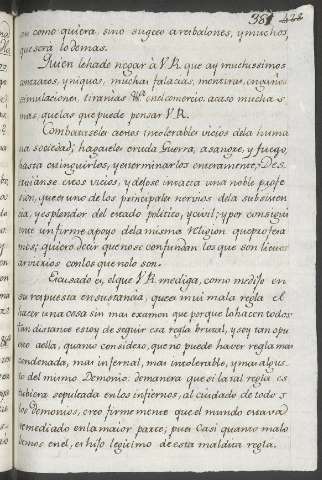 381 422
no como quiera, sino sugeto a rebalones, y muchos,
que sera lo demas.
Quien le hade negar à V.R. que ay muchissimos
contratos, y niquas, muchas falacias, mentiras, engaños
simulaciones, tiranias &ª en el comercio, acaso muchas
mas, que las que puede pensar V.R.
Combatase a estos intolerables vicios de la huma
na sociedad; hagaseles cruda Guerra, a sangre, y fuego,
hasta extinguirlos, y exterminarlos enteramente; Des
truianse estos vicios, y dejese intacta una noble profe
sion, que es uno de los principales nervios de la subsisten
cia, y esplendor del estado politico, y civil; y por consiguien
te un firme apoyo de la misma Religion que profesa
mos; quiero decir que no se confundan los que son lienos
a vicios con los que no lo son.
Escusado es, el que V.R. me diga, como me dijo en
su respuesta en sustancia, que es mui mala regla el
hacer una cosa sin mas examen que porque lo hacen todos
tan distante estoy de seguir esa regla brutal, y soy tan opu
esto a ella, quanto considero, que no puede haver regla mas
condenada, mas infernal, mas intolerable, y mas al gus
to del mismo Demonio: de manera que si la tal regla es
tubiera sepultada en los infiernos, al cuidado de todos
los Demonios, creo firmemente que el mundo estava
remediado en la maior parte; pues casi quanto malo
vemos en el, es hijo legitimo de esta maldita regla.